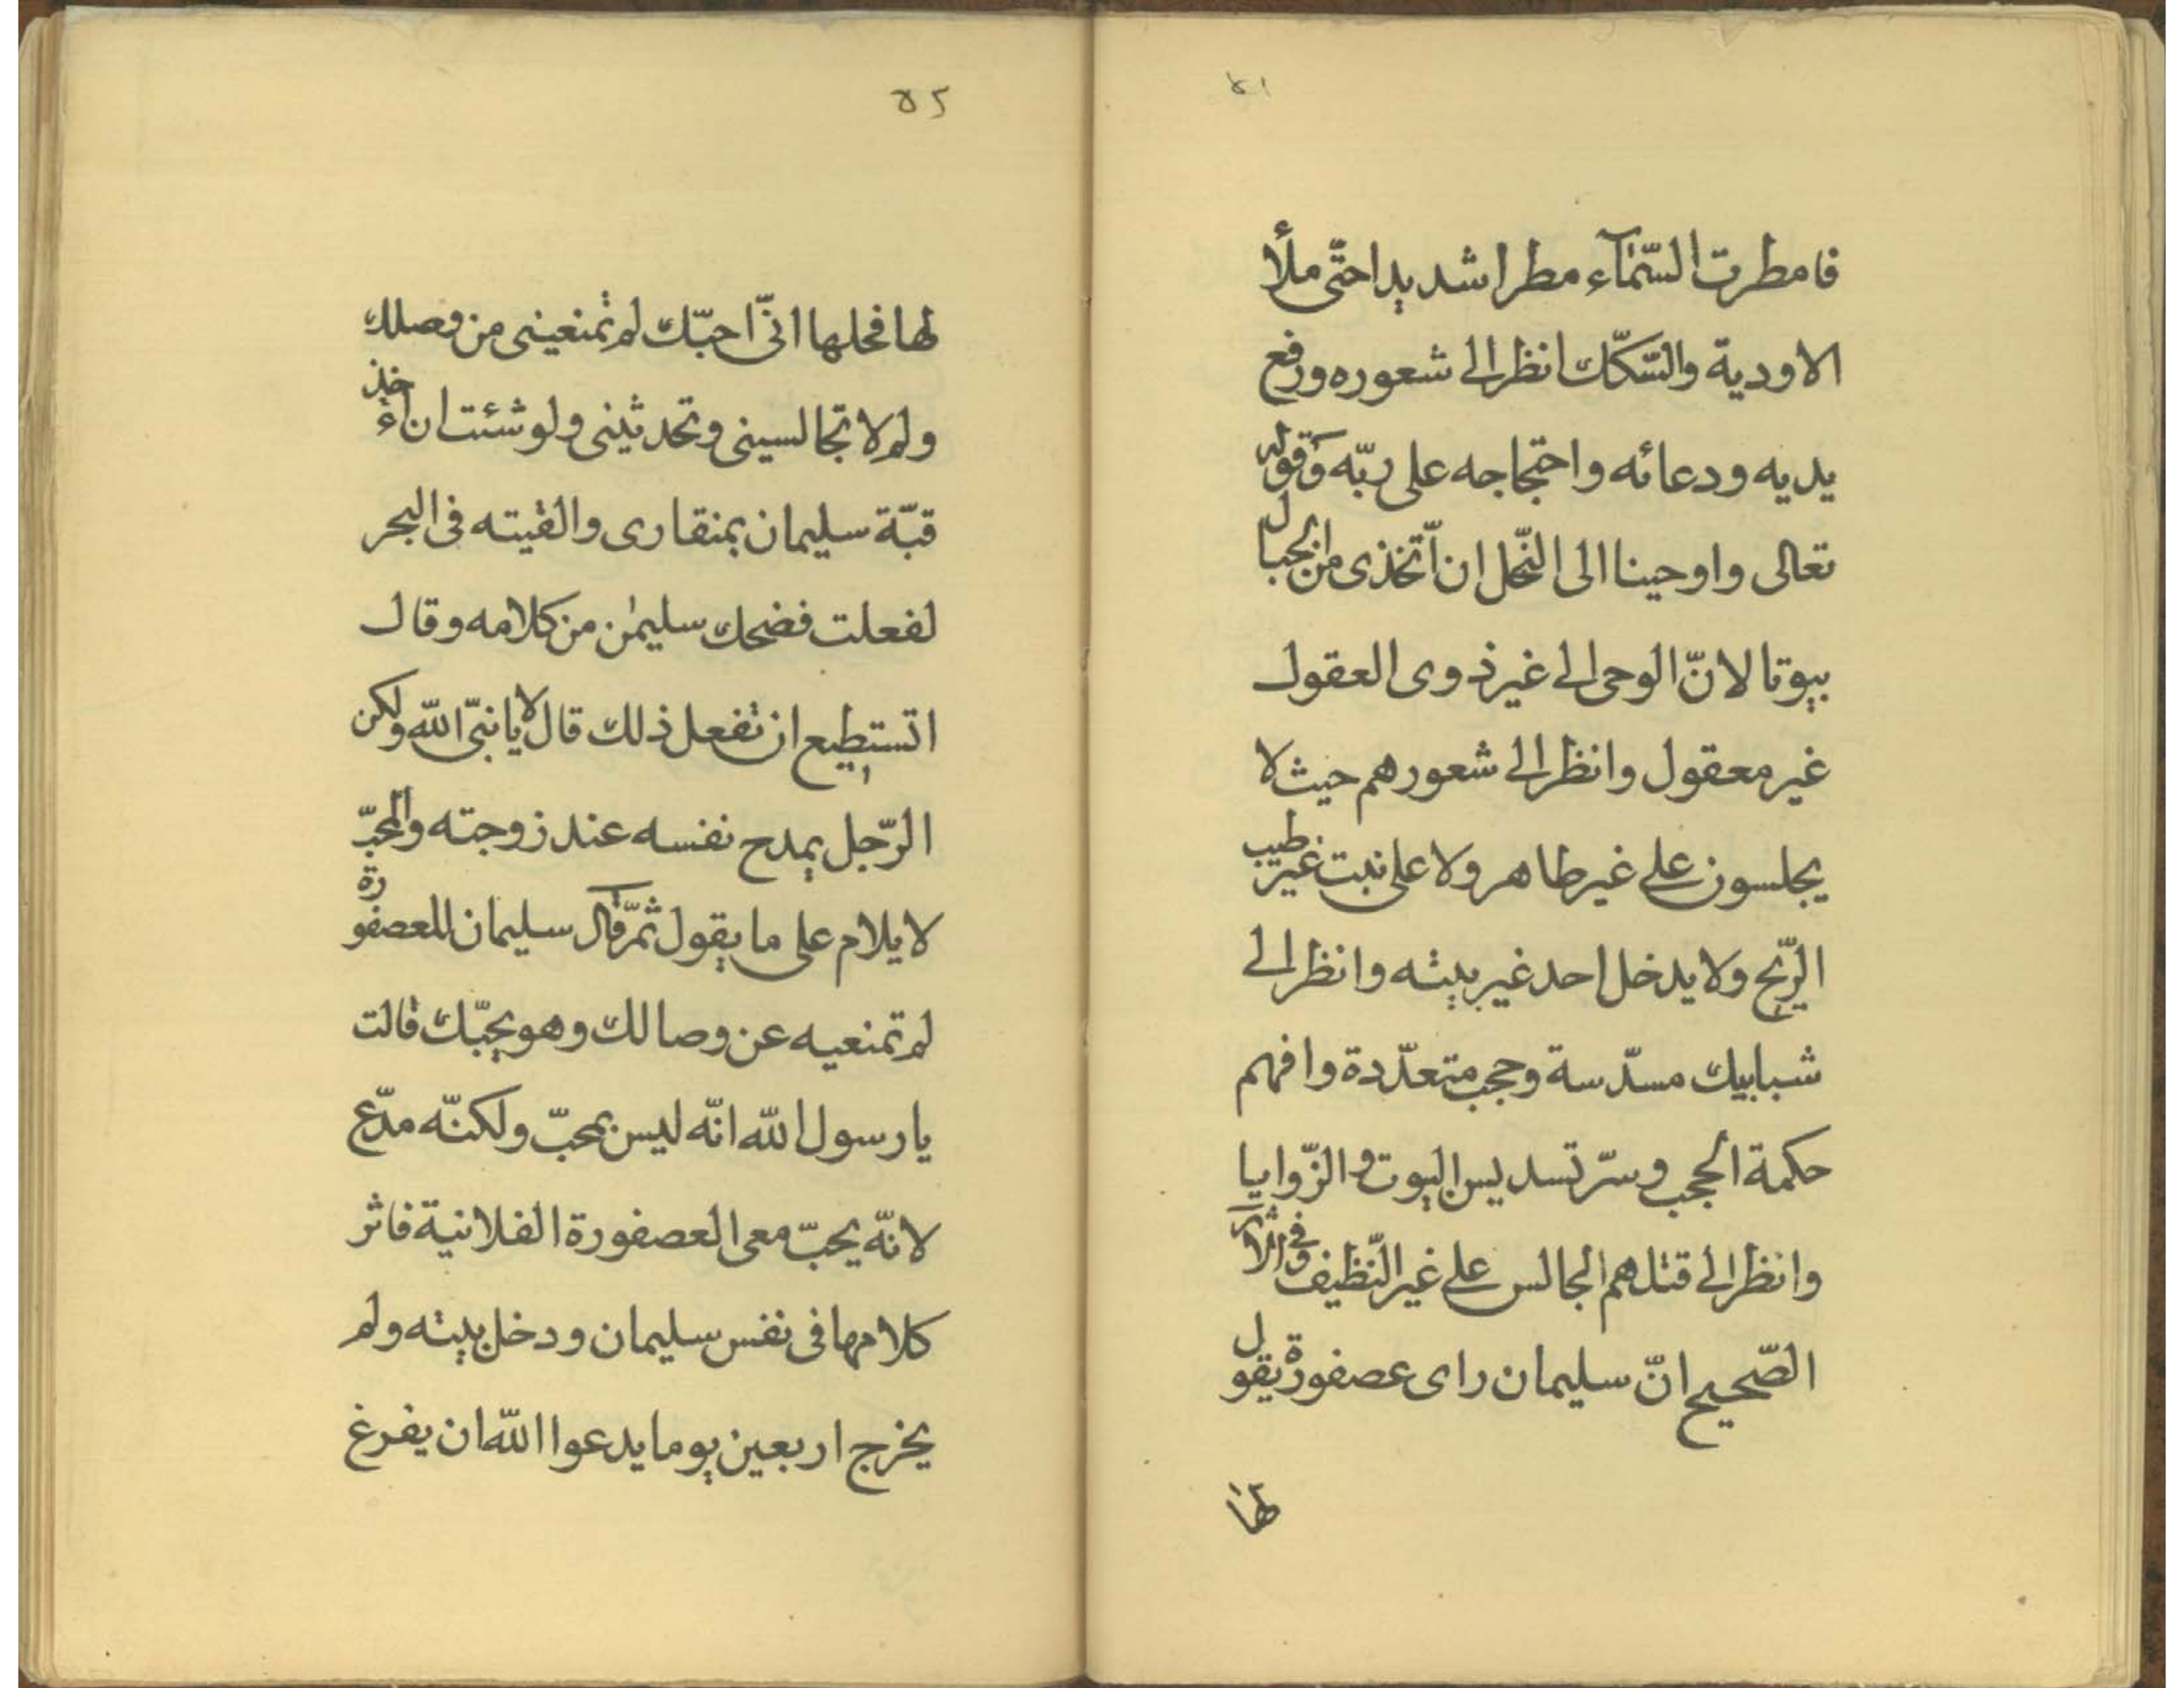 ٥١
فامطرت السّمآء مطرا شديدا حتّى ملأ
الاودية والسّكّك انظر الى شعوره ورفع
يديه ودعائه واحتجاجه على ربّه وقوله
تعالى واوحينا الى النّحل ان اتّخذى من الجبال
بيوتا لانّ الوحى الى غير ذوى العقول
غير معقول وانظر الى شعورهم حيث لا
يجلسون على غير طاهر ولا على نبت غير طيب
الرّيح ولا يدخل احد غير بيته وانظر الى
شبابيك مسدّسة وحجب متعدّدة وافهم
حكمة الحجب وسرّ تسديس البيوت والزّوايا
وانظر الى قتلهم الجالس على غير النّظيف وفى الاثر
الصّحيح انّ سليمان راى عصفورة يقول
لها
٥٢
لها فحلها انّى احبّك لم تمنعينى من وصلك
ولم لا تجالسينى وتحدثينى ولو شئت ان اخذ
قبّة سليمان بمنقارى والقيته فى البحر
لفعلت فضحك سليمٰن من كلامه وقال
اتستطيع ان تفعل ذلك قال لا يا نبىّ اللّه ولكن
الرّجل يمدح نفسه عند زوجته والمحبّ
لا يلام على ما يقول ثمّ قال سليمان للعصفورة
لم تمنعيه عن وصالك وهو يحبّك قالت
يا رسول اللّه انّه ليس بمحبّ ولكنّه مدّع
لانّه يحبّ معى العصفورة الفلانية فاثر
كلامها فى نفس سليمان ودخل بيته ولم
يخرج اربعين يوما يدعوا اللّه ان يفرغ